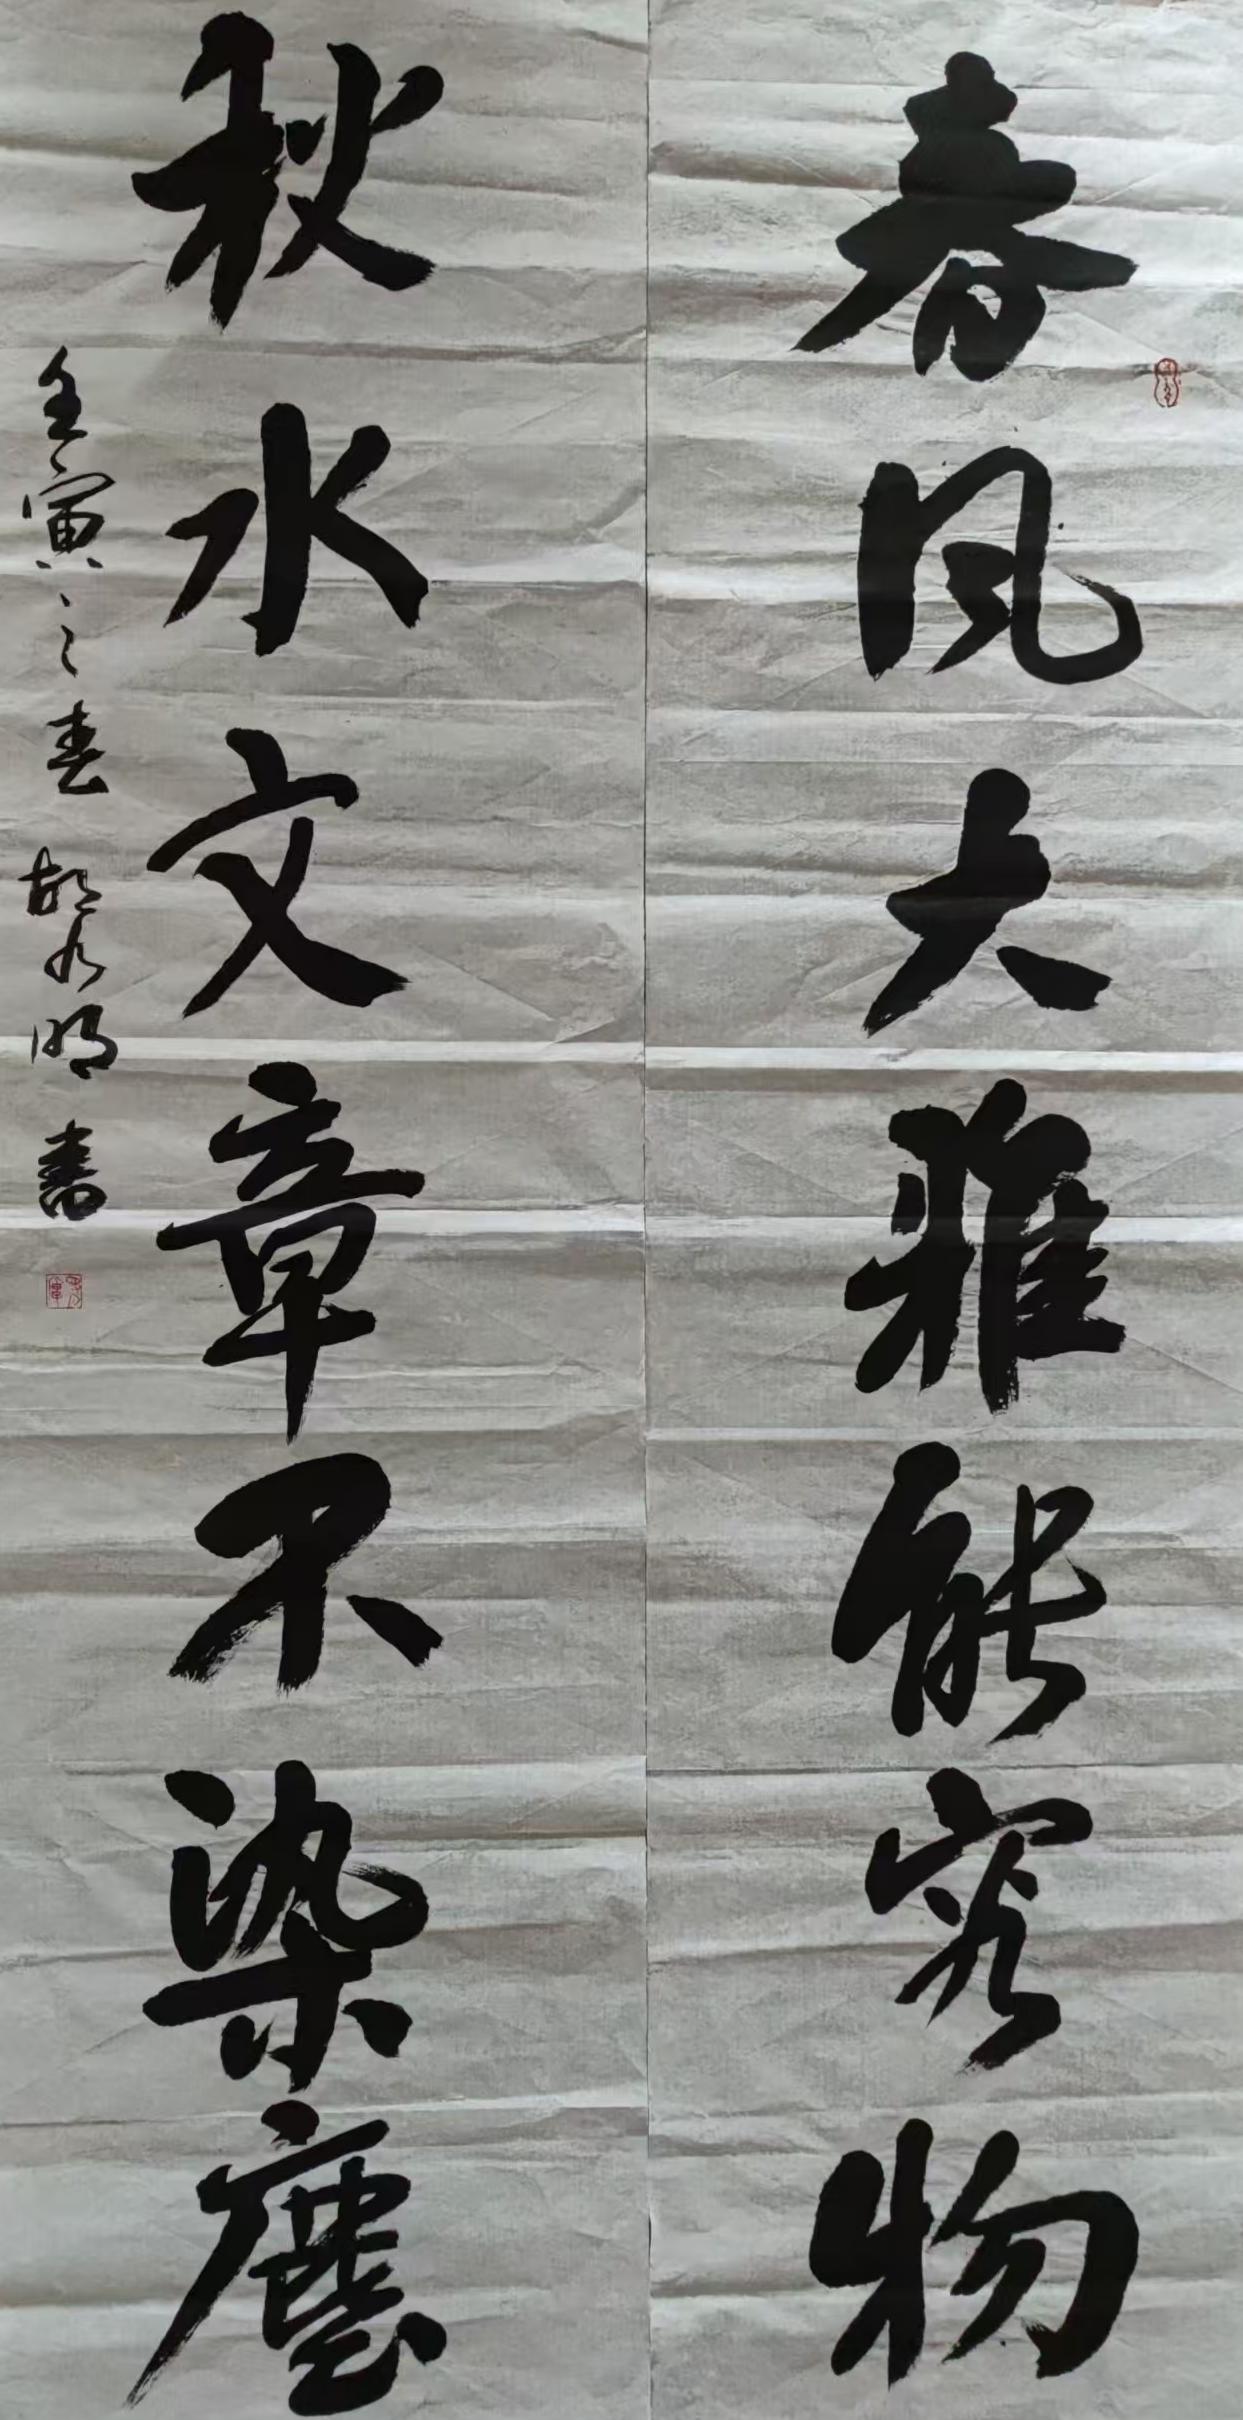 春风大雅能容物
秋水文章不染塵
壬寅之春 胡 明書